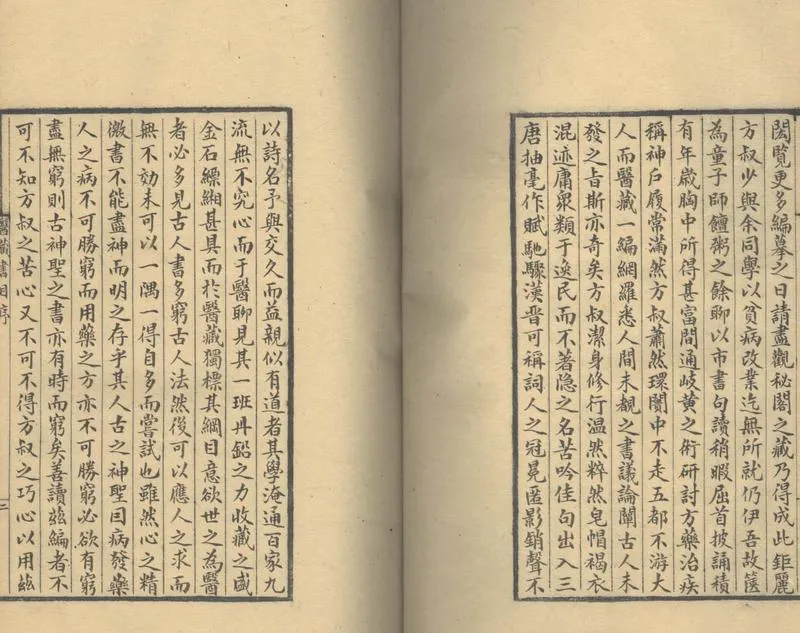 閎覽更多編摹之日請盡觀秘閣之藏乃得成此鉅麗
方叔少與余同學以貧病改業迄無所就仍伊吾故篋
為童子師饘粥之餘聊以市書句讀稍暇屈首披誦積
有年歲胸中所得甚富間通岐黃之術研討方藥治疾
稱神戶履常滿然方叔蕭然環闠中不走五都不游大
人而醫藏一編網羅悉人間未覩之書議論闡古人未
發之旨斯亦奇矣方叔潔身修行溫然粹然皂帽褐衣
混迹庸衆類于逸民而不著隐之名苦吟佳句出入三
唐抽毫作賦馳驟漢晋可稱詞人之冠冕匿影銷聲不
以詩名予與交久而益親似有道者其學淹通百家九
流無不究心而于醫聊見其一班丹鉛之力收藏之盛
金石縹緗甚具而於醫藏獨標其綱目意欲世之為醫
者必多見古人書多窮古人法然後可以應人之求而
無不効未可以一隅一得自多而嘗試也雖然心之精
微書不能盡神而明之存乎其人古之神聖因病發藥
人之病不可勝窮而用藥之方亦不可勝窮必欲有窮
盡無窮則古神聖之書亦有時而窮矣善讀茲編者不
可不知方叔之苦心又不可不得方叔之巧心以用茲
醫藏書目序
三